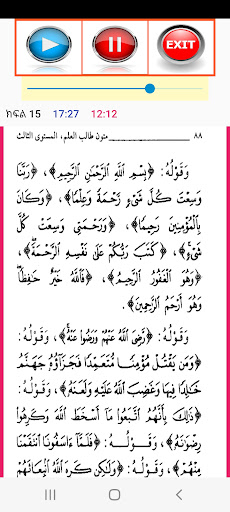 EXIT
ክፍል 15 17:27 12:12
متون طالب العلم، المستوى الثالث ٨٨
وَقَوْلُهُ: ﴿بِسْمِ ٱللَّهِ ٱلرَّحْمَٰنِ ٱلرَّحِيمِ﴾، ﴿رَبَّنَا
وَسِعْتَ كُلَّ شَىْءٍ رَّحْمَةً وَعِلْمًا﴾، ﴿وَكَانَ
بِٱلْمُؤْمِنِينَ رَحِيمًا﴾، ﴿وَرَحْمَتِى وَسِعَتْ كُلَّ
شَىْءٍ﴾، ﴿كَتَبَ رَبُّكُمْ عَلَىٰ نَفْسِهِ ٱلرَّحْمَةَ﴾،
﴿وَهُوَ ٱلْغَفُورُ ٱلرَّحِيمُ﴾، ﴿فَٱللَّهُ خَيْرٌ حَٰفِظًا
وَهُوَ أَرْحَمُ ٱلرَّٰحِمِينَ﴾.
وَقَوْلُهُ: ﴿رَّضِىَ ٱللَّهُ عَنْهُمْ وَرَضُوا۟ عَنْهُ﴾، وَقَوْلُهُ:
﴿وَمَن يَقْتُلْ مُؤْمِنًا مُّتَعَمِّدًا فَجَزَآؤُهُۥ جَهَنَّمُ
خَٰلِدًا فِيهَا وَغَضِبَ ٱللَّهُ عَلَيْهِ وَلَعَنَهُۥ﴾، وَقَوْلُهُ:
﴿ذَٰلِكَ بِأَنَّهُمُ ٱتَّبَعُوا۟ مَآ أَسْخَطَ ٱللَّهَ وَكَرِهُوا۟
رِضْوَٰنَهُۥ﴾، وَقَوْلُهُ: ﴿فَلَمَّآ ءَاسَفُونَا ٱنتَقَمْنَا
مِنْهُمْ﴾، وَقَوْلُهُ: ﴿وَلَٰكِن كَرِهَ ٱللَّهُ ٱنۢبِعَاثَهُمْ